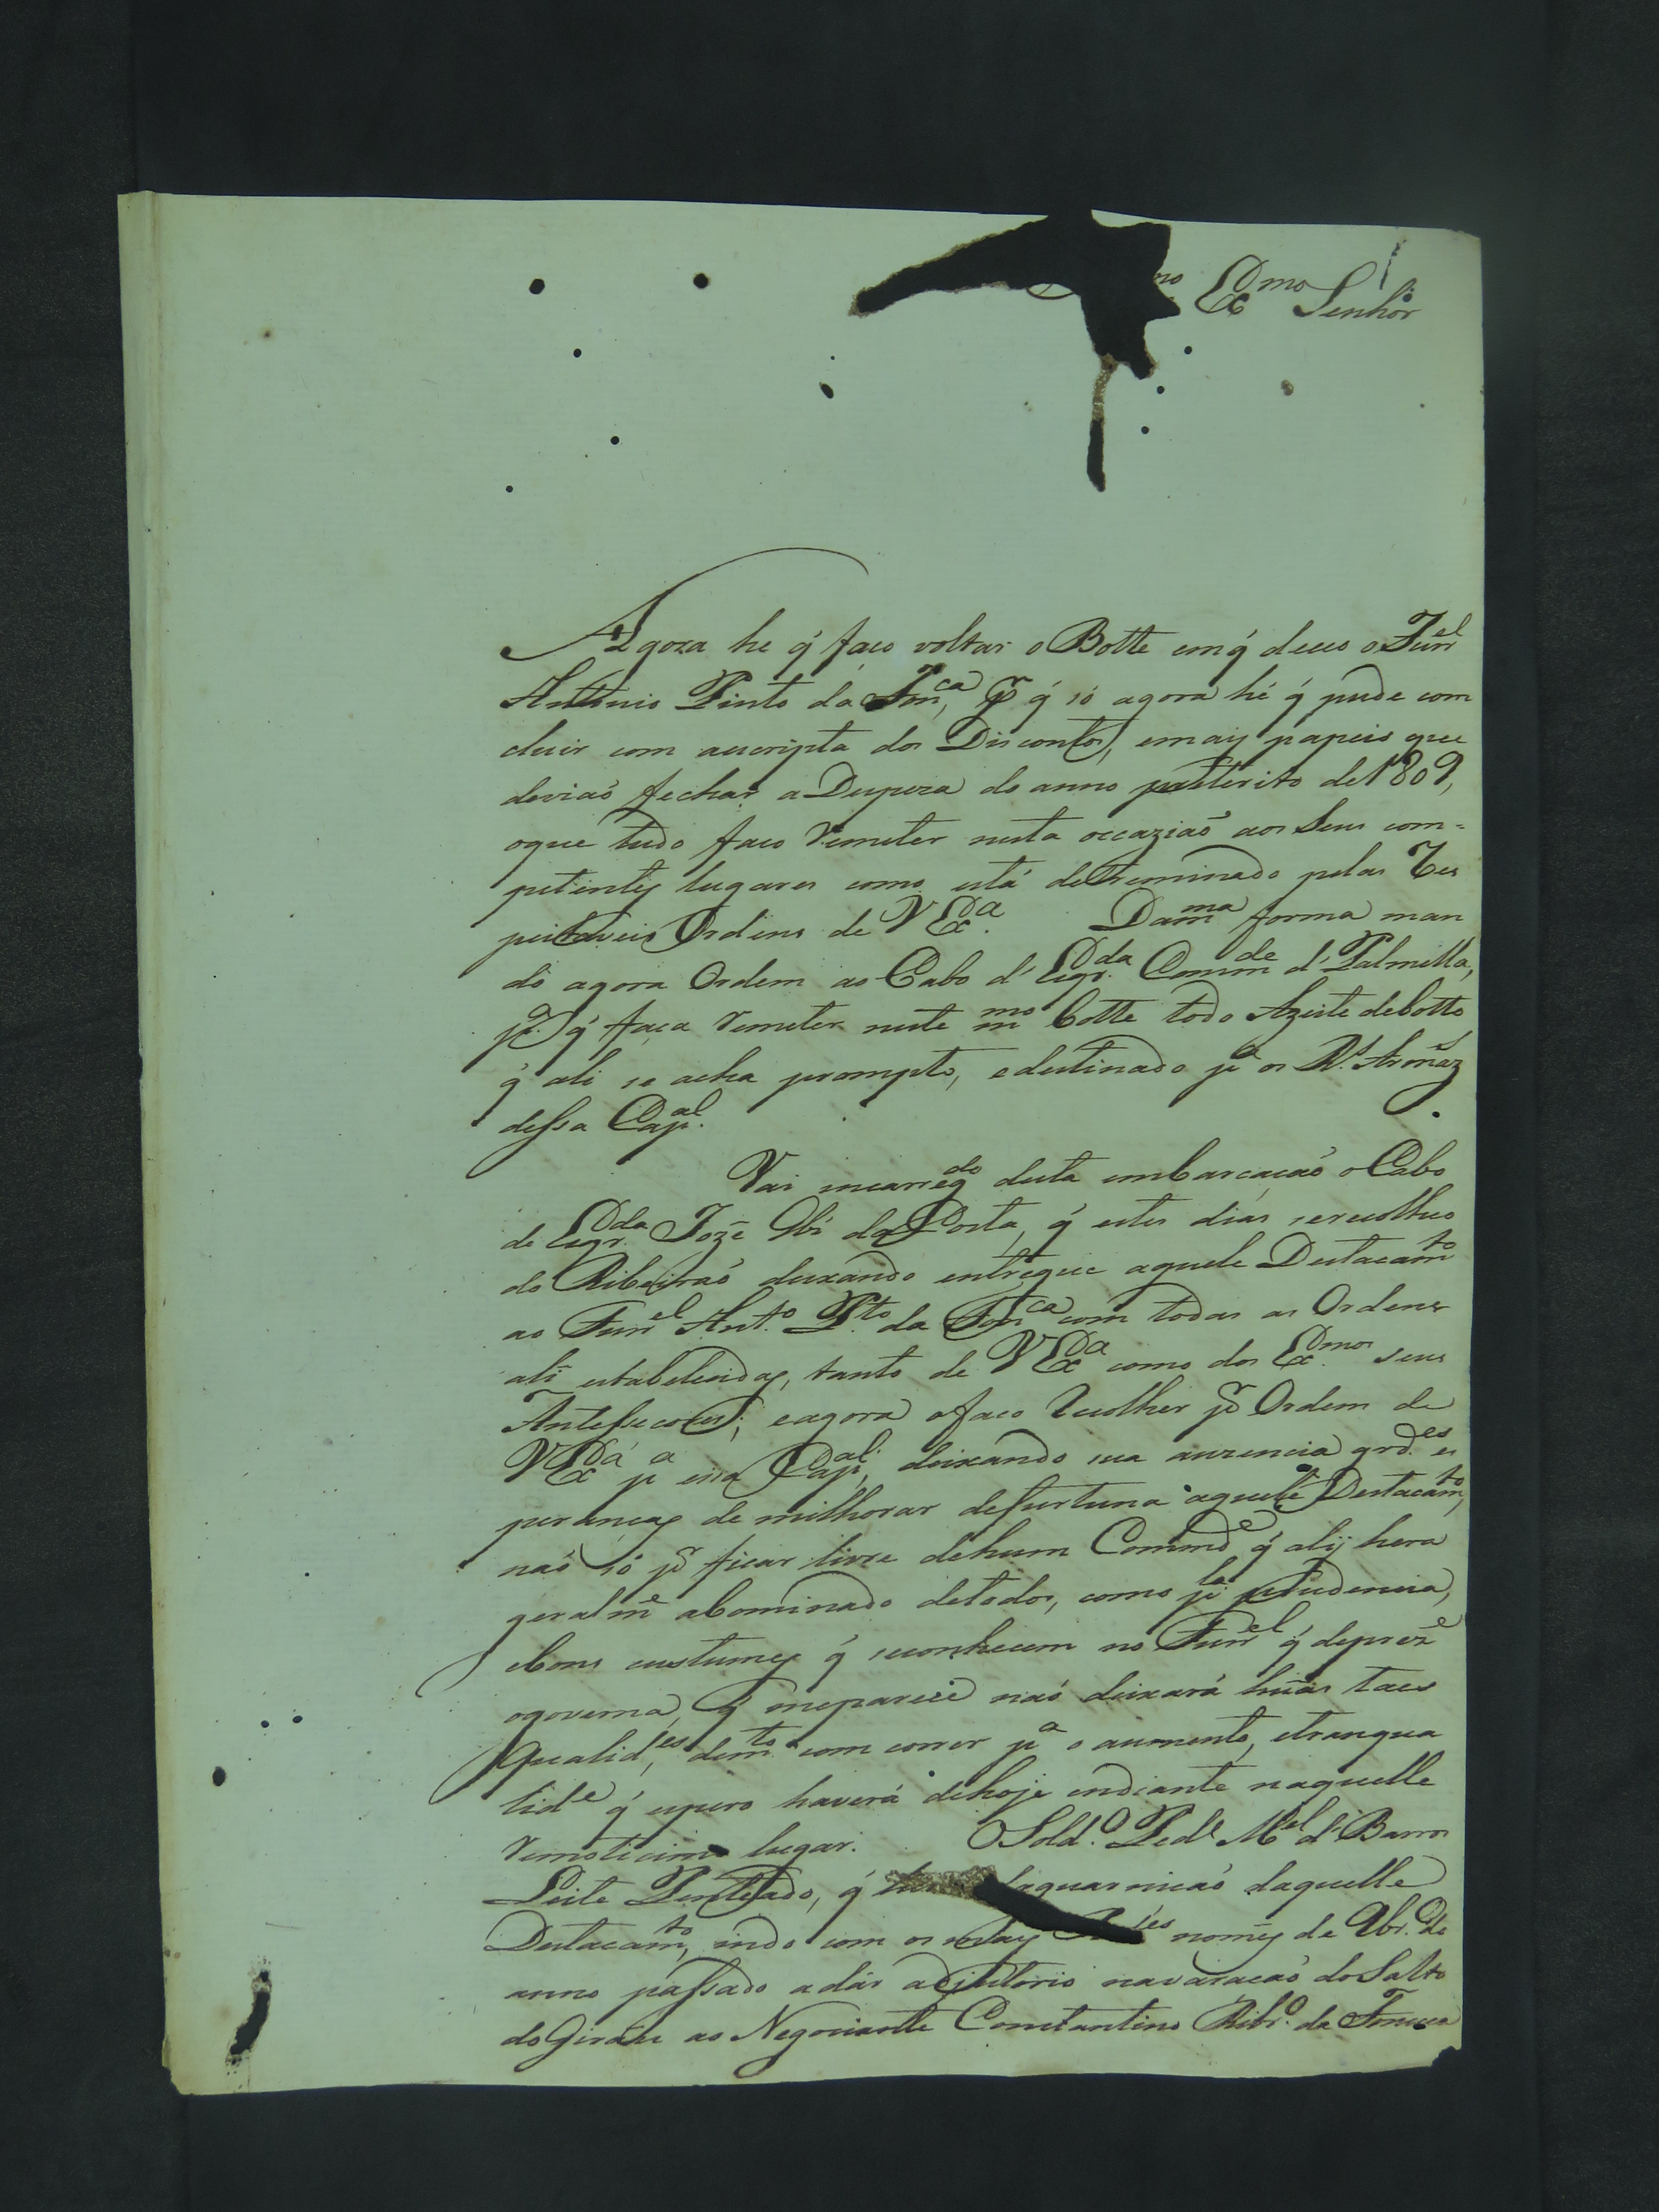 mo Exmo Senhor
Agora he q́ faco voltar o Botte em q́ deceo o Furel
Antonio Pinto da Fonca, pr q́ só agora hé q́ pude com
cluir com aescripta dos Discontos, emay papeis que
deviaó fechar a Despeza do anno preterito de 1809,
oque tudo faco Remeter nesta occaziaó aos Seus com=
petintes lugares como está detreminado pelas Res
peitaveis Ordens de VExa. Damma forma man
do agora Ordem ao Cabo d' Esqrda Commde d' Palmella,
pa q́ faca Remeter neste mmo botte todo Azeite debotto
q́ ali se acha prompto, edestinado pa os Rs. Armaz
dessa Capal.
Vai encarregdo desta embarcacaó o Cabo
de Esqrda Joze da Costa, q́ estes dias serecolheo
do Ribeiraó deixando entregue aquele Destacamto
ao Furel Anto. Pto. da Fonca com todas as Ordens
ali estabelecidas, tanto de VExa como dos Exmos seus
Antessecores; eagora ofaco Recolher pr Ordem de
VExa pa essa Capal, deixando sua auzencia grdes es
perancas de milhorar defurtuna aquele Destacamto,
naó só pr ficar livre dehum Commde q́ alij hera
geralme abominado detodos, como pla prudencia,
ebons custumes q́ seconhecem no Furel q́ depreze
ogoverna, q́ meparece naó deixará huãs taes
qualides, demto com correr pa o aumento, etranqua
lide q́ espero haverá dehoje endiante naquelle
Remoticimo lugar. OSoldo. Pedo Mel d' Barros
Leite Penteado, q́ daguarnicaó daquelle
Destacamto, indo com os may nomes de 9br.o do
anno passado adár adjutorio navaracaó do Salto
do Giráu ao Negociante Constantino Ribro. da Fonceca